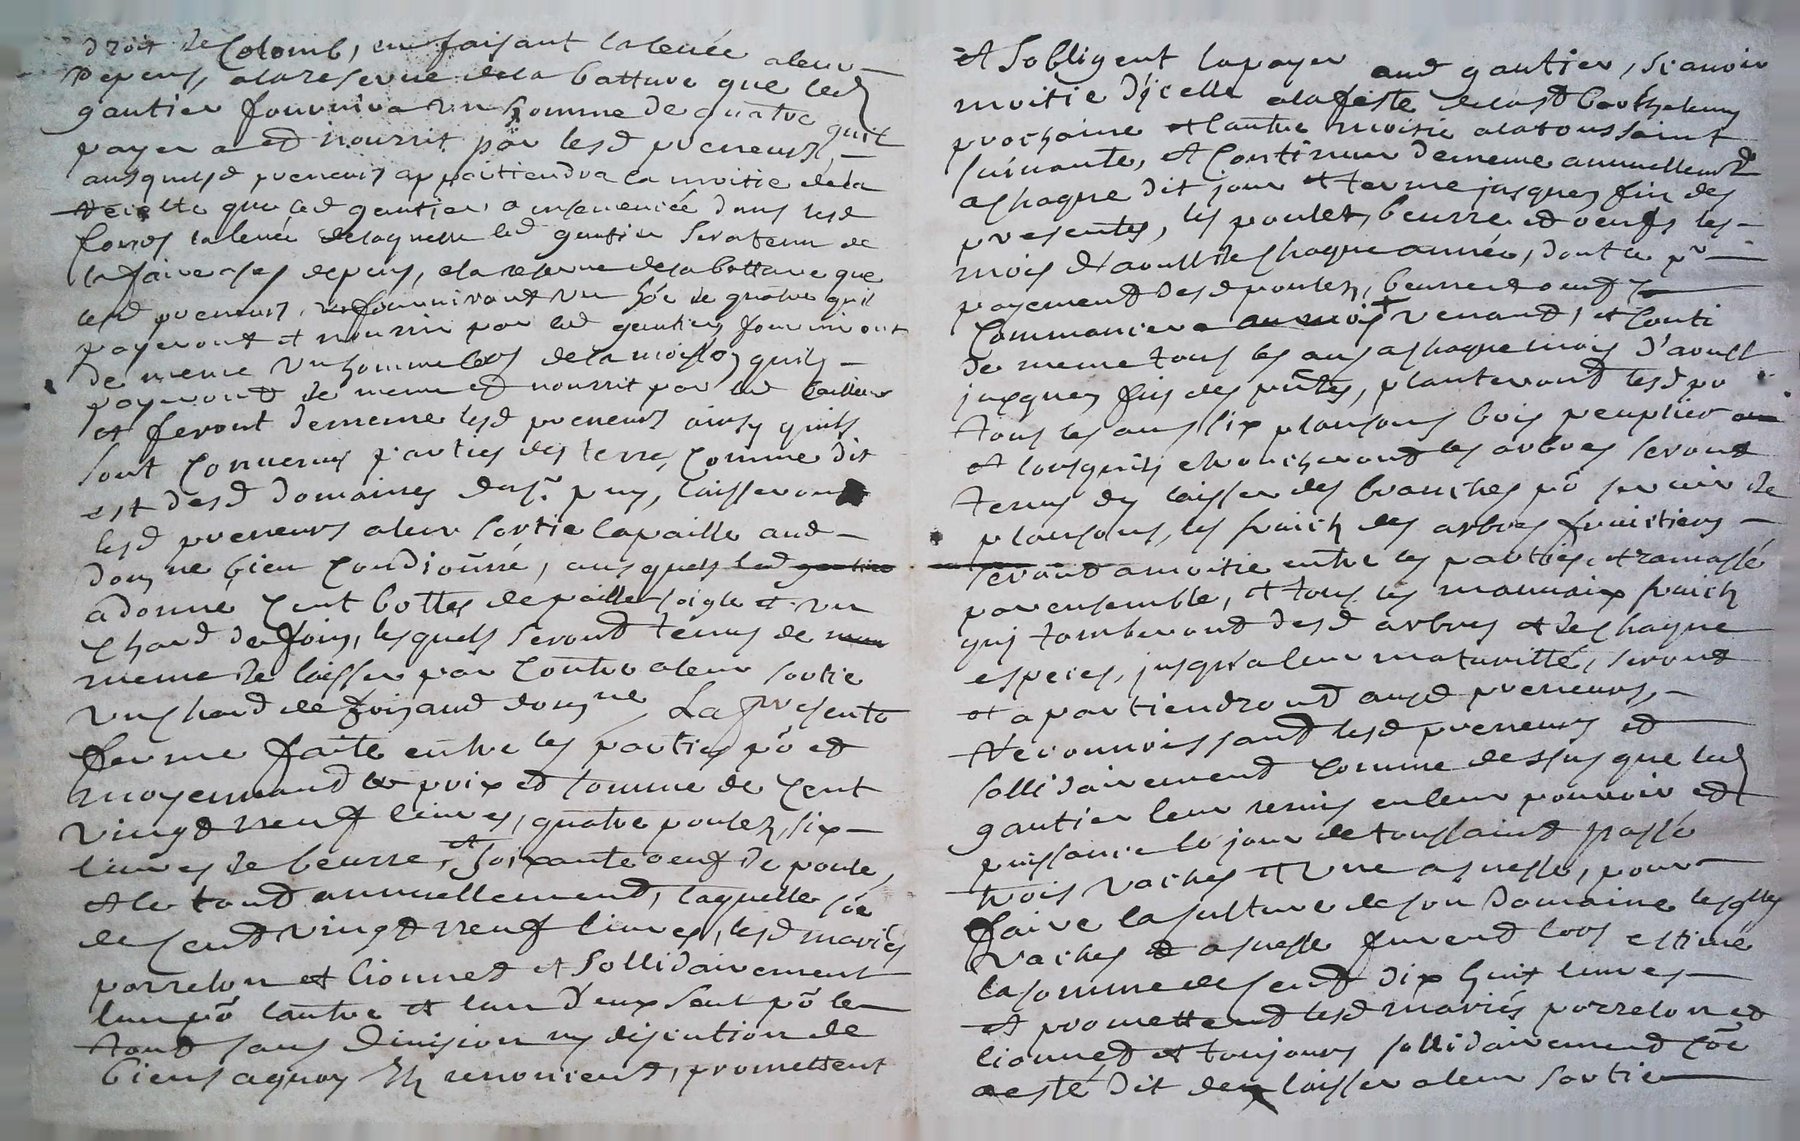 droit de Colomb, en faisant la levée a leur
depens, a la reserve de la batture que led
gautier fournira un homme de quatre quil
payera et nourrit par lesd preneurs,
ausquelsd preneurs appartiendra la moitie de la
que led gautier a insemencée dans lesd
fonds la levée de laquelle led gautier sera tenu de
la faire a ses depens, a la reserve de la batture que
lesd preneurs, fourniront un hoe de quatre quil
payeront et nourrir par led gautier, fourniront
de meme un homme lors de la moisson quils
payeront de meme et nourrit par led bailleur
et feront de meme lesd preneurs ainsy quils
sont convenus parties des terres, comme dit
est desd domaines de sr. puy, laisseront
lesd preneurs a leur sortie la paille aud
domne bien condionné, ausquels led gautier
a donné cent bottes de paille soigle et un
chard de foin, lesquels seront tenus de
meme de laisser par contre a leur sortie
un chard de foin aud domne La presente
ferme faite entre les parties po et
moyennand le prix et somme de cent
vingt neuf livres, quatre poulets, six
livres de beurre, et soixante oeuf de poule,
et le tout annuellement, laquelle soe
de cent vingt neuf livres, lesd mariés
porrelon et lionnet et sollidairement
lun po lautre et lun deux seul po le
tout sans division ny discution de
biens a quoy ils renoncent, promettent
et sobligent la payer aud gautier, scavoir
moitie dicelle a la feste de la st barthelemy
prochaine et lautre moitie a la toussaint
suivante, et continuer de meme annuellemt
a chaque dit jour et terme jusques fin des
presentes, les poulets, beurre et oeufs les
mois daoust de chaque année, dont le pr
payement desd poulets, beurre et oeufs
commancera au mois venant, et conti
de meme tous les ans a chaque mois d'aoust
jusques fin des pntes, planteront lesd pr
tous les ans six plansons bois peuplier
et lorsquils ebrancheront les arbres seront
tenus dy laisser des branches po servir de
plansons, les fruich des arbres fruitiers
seront a moitie entre les parties, et ramassé
par ensemble, et tous les mauvaix fruich
qui tomberont desd arbres et de chaque
especes, jusqua leur maturitté, seront
et apartiendront ausd preneurs,
reconnoissant lesd preneurs et
sollidairement comme dessus que led
gautier leur remis en leur pouvoir et
puissance le jour de toussaint passé
trois vaches et une anesse, pour
faire la culture de son domaine lesqlles
vaches et anesse furent lors estimé
la somme de cent dix huit livres
et promettent lesd mariés porrelon et
lionnet et toujours sollidairement coe
a esté dit den laisser a leur sortie